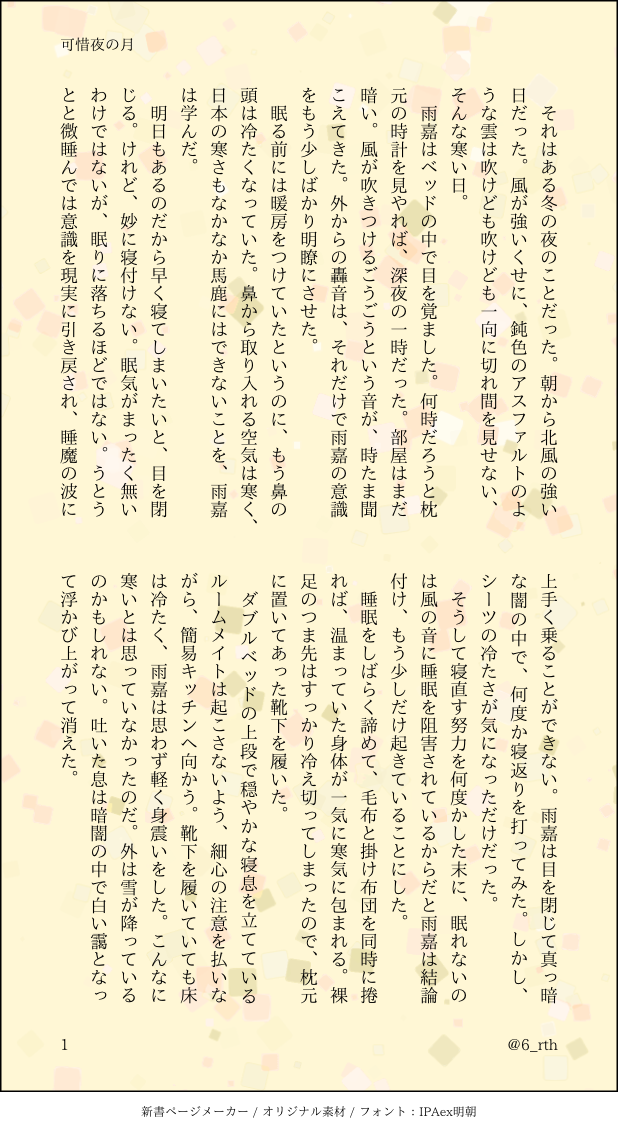 可惜夜の月
　それはある冬の夜のことだった。朝から北風の強い
日だった。風が強いくせに、鈍色のアスファルトのよ
うな雲は吹けども吹けども一向に切れ間を見せない、
そんな寒い日。
　雨嘉はベッドの中で目を覚ました。何時だろうと枕
元の時計を見やれば、深夜の一時だった。部屋はまだ
暗い。風が吹きつけるごうごうという音が、時たま聞
こえてきた。外からの轟音は、それだけで雨嘉の意識
をもう少しばかり明瞭にさせた。
　眠る前には暖房をつけていたというのに、もう鼻の
頭は冷たくなっていた。鼻から取り入れる空気は寒く、
日本の寒さもなかなか馬鹿にはできないことを、雨嘉
は学んだ。
　明日もあるのだから早く寝てしまいたいと、目を閉
じる。けれど、妙に寝付けない。眠気がまったく無い
わけではないが、眠りに落ちるほどではない。うとう
とと微睡んでは意識を現実に引き戻され、睡魔の波に
上手く乗ることができない。雨嘉は目を閉じて真っ暗
な闇の中で、何度か寝返りを打ってみた。しかし、
シーツの冷たさが気になっただけだった。
　そうして寝直す努力を何度かした末に、眠れないの
は風の音に睡眠を阻害されているからだと雨嘉は結論
付け、もう少しだけ起きていることにした。
　睡眠をしばらく諦めて、毛布と掛け布団を同時に捲
れば、温まっていた身体が一気に寒気に包まれる。裸
足のつま先はすっかり冷え切ってしまったので、枕元
に置いてあった靴下を履いた。
　ダブルベッドの上段で穏やかな寝息を立てている
ルームメイトは起こさないよう、細心の注意を払いな
がら、簡易キッチンへ向かう。靴下を履いていても床
は冷たく、雨嘉は思わず軽く身震いをした。こんなに
寒いとは思っていなかったのだ。外は雪が降っている
のかもしれない。吐いた息は暗闇の中で白い靄となっ
て浮かび上がって消えた。
1
@6_rth
新書ページメーカー / オリジナル素材 / フォント：IPAex明朝